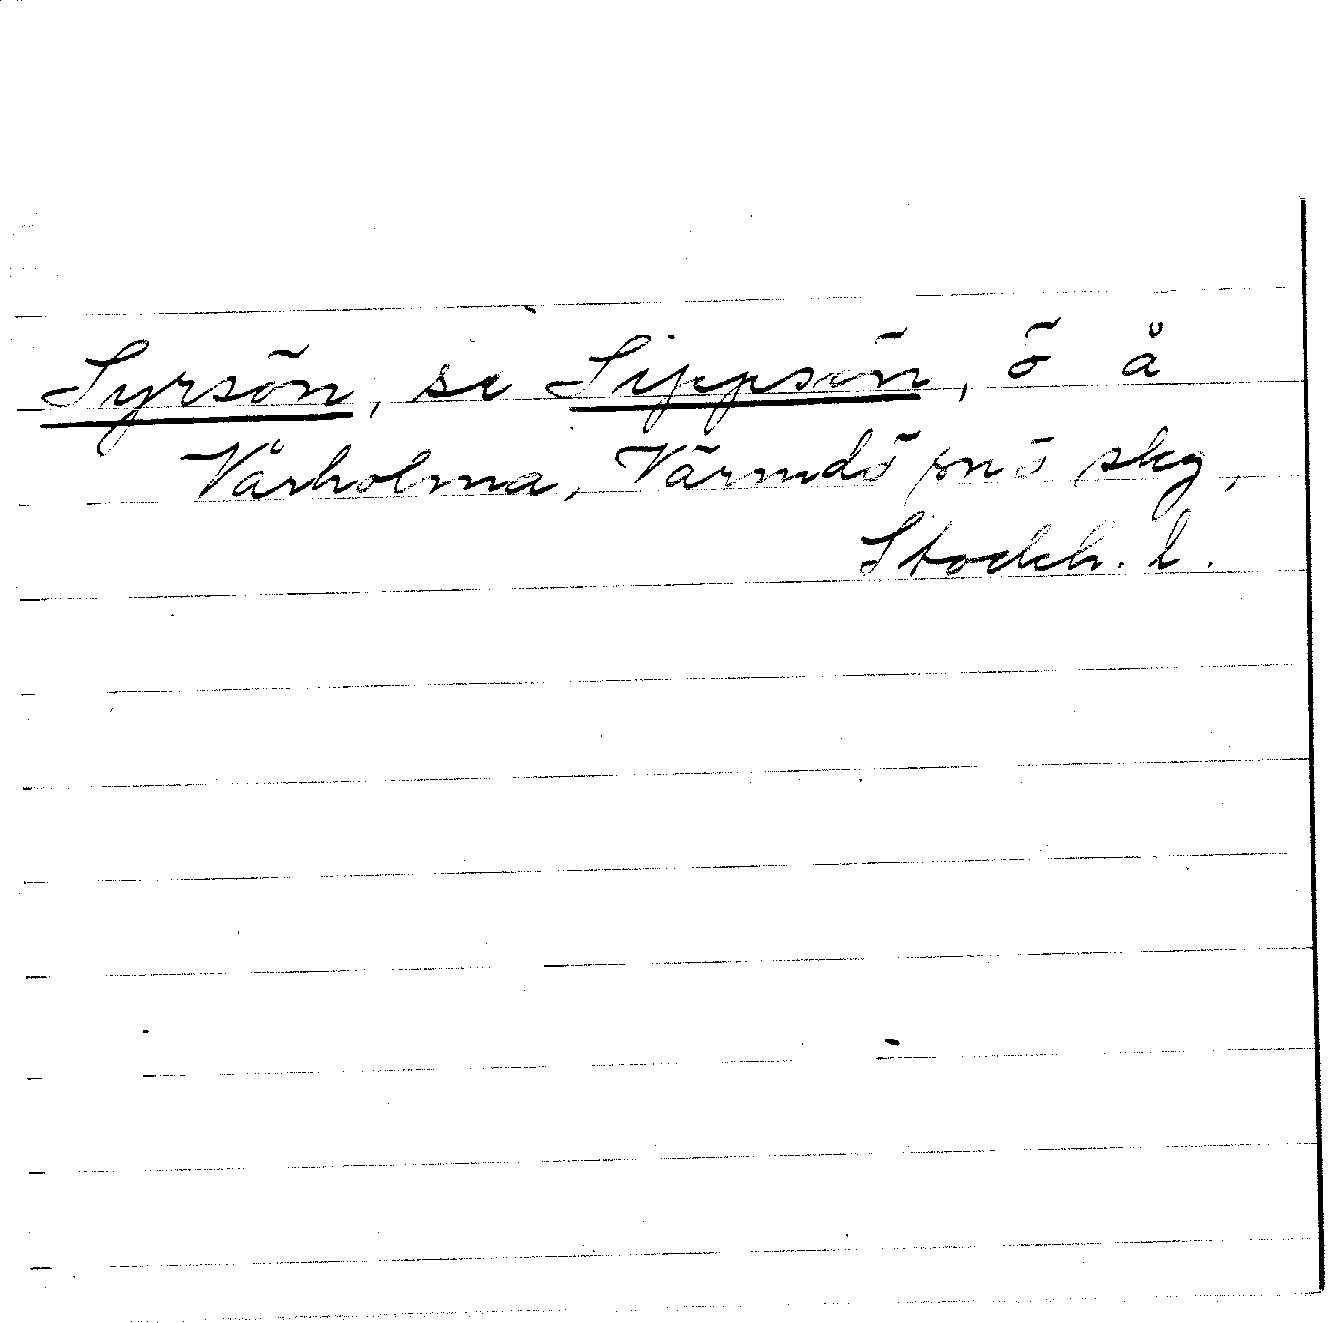 Syrsön, se Sippsön, ö å
Vårholma, Värmdö sn o skg,
Stockh. l.